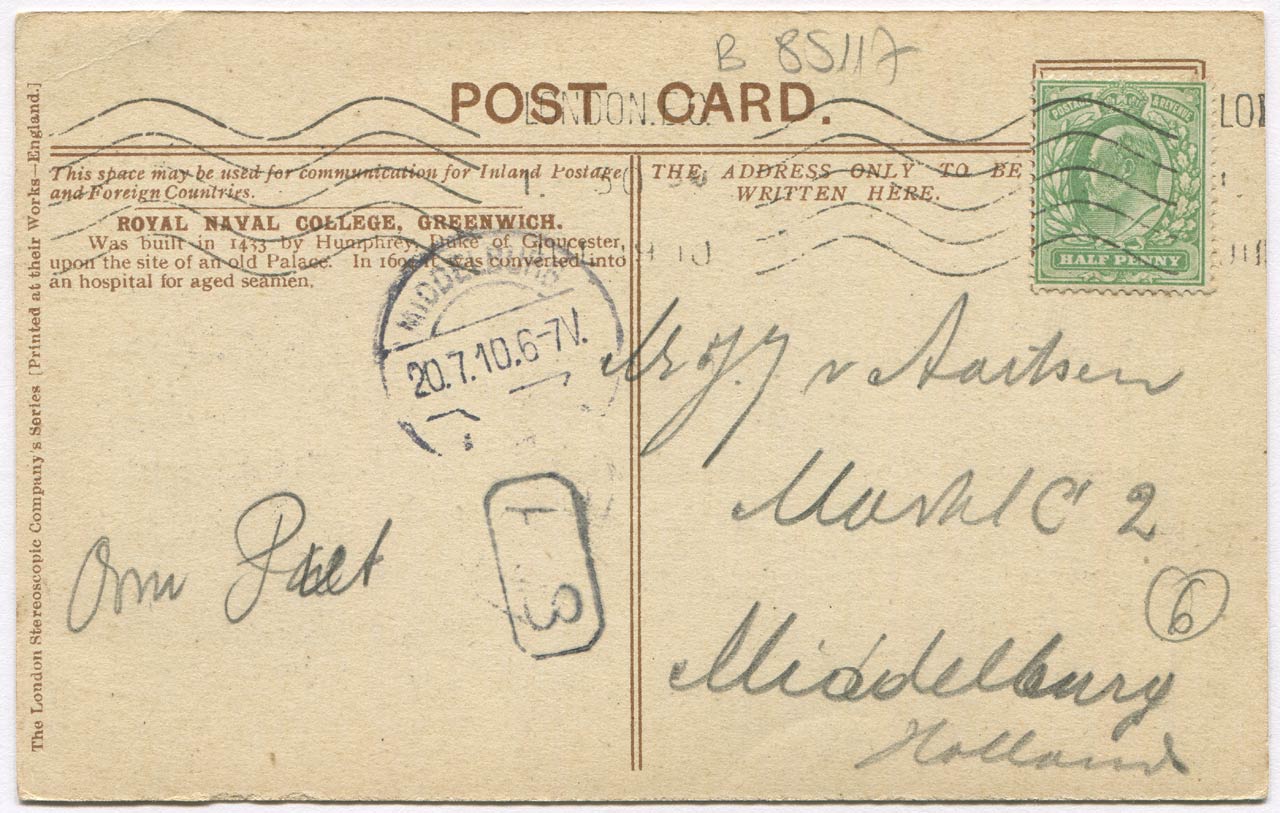 B 85117
POST CARD.
LONDON.E.C.
POSTAGE & REVENUE
HALF PENNY
This space may be used for communication for Inland Postage
and Foreign Countries.
THE ADDRESS ONLY TO BE
WRITTEN HERE.
ROYAL NAVAL COLLEGE, GREENWICH.
Was built in 1433 by Humphrey, Duke of Gloucester,
upon the site of an old Palace. In it was converted into
an hospital for aged seamen.
The London Stereoscopic Company's Series [Printed at their Works—England.]
MIDDELBURG
20.7.10.6-7V.
v Aartsen
Markt C 2
6
Middelburg
Holland
Om Piet